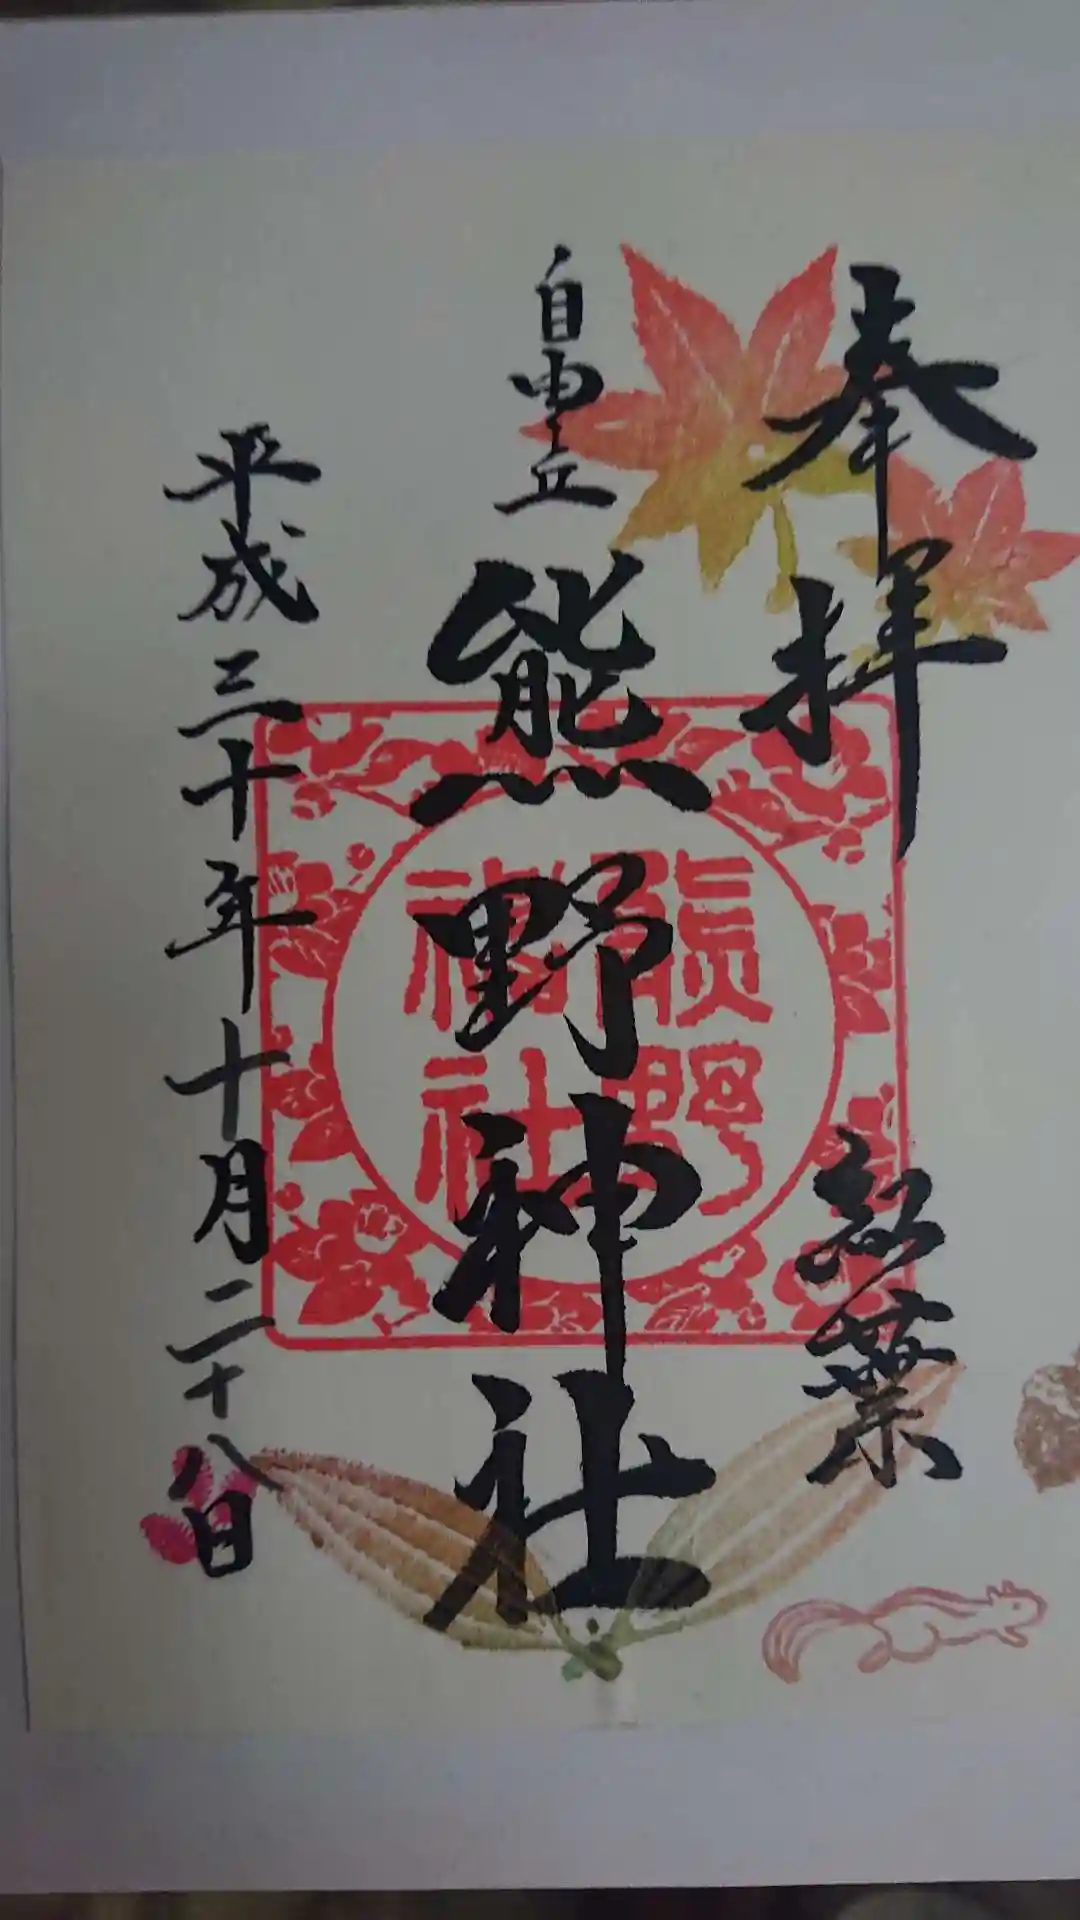 奉拝
紅葉
自由が丘
熊野神社
熊野神社
平成三十年十月二十八日